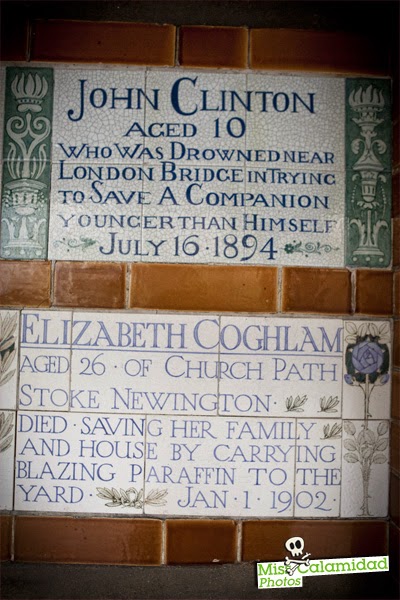 JOHN CLINTON
AGED 10
WHO WAS DROWNED NEAR
LONDON BRIDGE IN TRYING
TO SAVE A COMPANION
YOUNGER THAN HIMSELF
JULY 16 · 1894
ELIZABETH COGHLAM
AGED 26 · OF CHURCH PATH
STOKE NEWINGTON ·
DIED · SAVING HER FAMILY
AND HOUSE BY CARRYING
BLAZING PARAFFIN TO THE
YARD · JAN · 1 · 1902 ·
Miss Calamidad
Photos